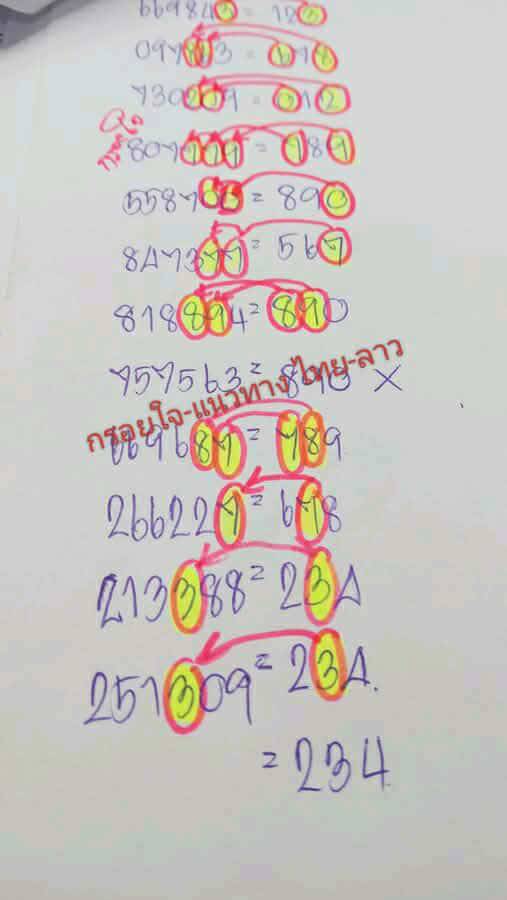 669843 = 123
097863 = 678
730209 = 012
807779 = 789
558700 = 890
847377 = 567
818894 = 890
757563 = 890 X
กรอยใจ-แนวทาง ไทย-ลาว
669687 = 789
266227 = 678
213388 = 234
251309 = 234.
= 234